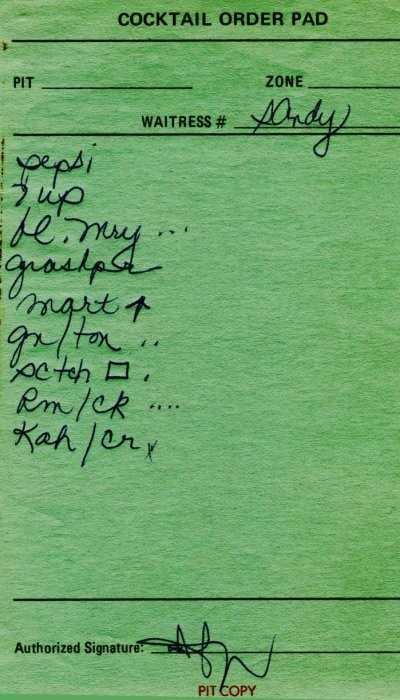 COCKTAIL ORDER PAD
PIT ZONE
WAITRESS # Sandy
pepsi
7 up
bl. mry ...
grashpr
mart ↑
gn/ton ..
sctch □ .
Rm/ck ....
Kah/cr x
Authorized Signature:
PIT COPY